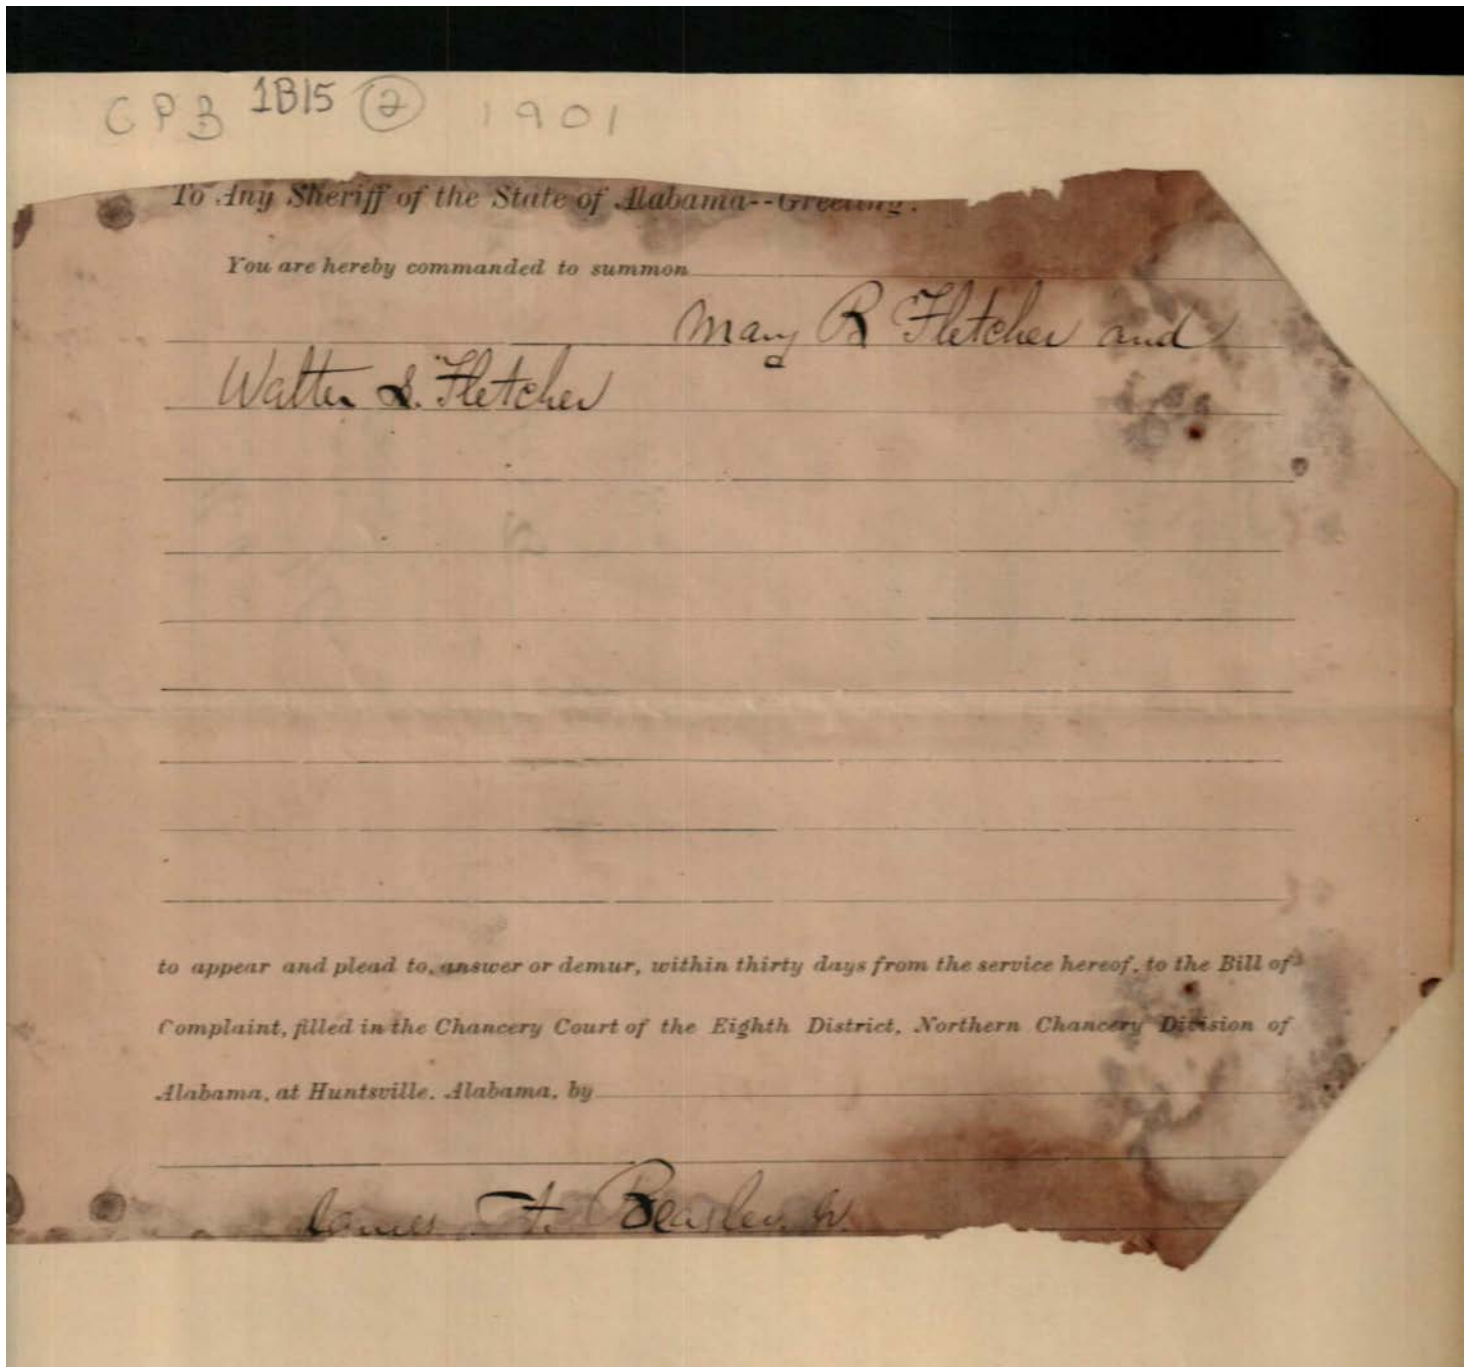 CPB 1B15 2 1901
To Any Sheriff of the State of Alabama--Greeting:
You are hereby commanded to summon
Mary B Fletcher and
Walter S. Fletcher
to appear and plead to, answer or demur, within thirty days from the service hereof, to the Bill of
Complaint, filled in the Chancery Court of the Eighth District, Northern Chancery Division of
Alabama, at Huntsville, Alabama, by
James F. Beasley